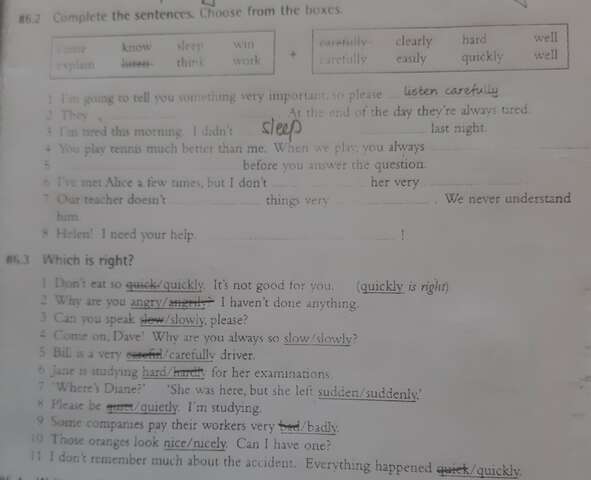 86.2 Complete the sentences. Choose from the boxes.
come know sleep win
explain listen think work
+
carefully clearly hard well
carefully easily quickly well
1 I'm going to tell you something very important, so please listen carefully
2 They At the end of the day they're always tired.
3 I'm tired this morning. I didn't sleep last night.
4 You play tennis much better than me. When we play, you always
5 before you answer the question.
6 I've met Alice a few times, but I don't her very
7 Our teacher doesn't things very . We never understand
him.
8 Helen! I need your help. !
86.3 Which is right?
1 Don't eat so quick/quickly. It's not good for you. (quickly is right)
2 Why are you angry/angrily? I haven't done anything.
3 Can you speak slow/slowly, please?
4 Come on, Dave! Why are you always so slow/slowly?
5 Bill is a very careful/carefully driver.
6 Jane is studying hard/hardly for her examinations.
7 'Where's Diane?' 'She was here, but she left sudden/suddenly.'
8 Please be quiet/quietly. I'm studying.
9 Some companies pay their workers very bad/badly.
10 Those oranges look nice/nicely. Can I have one?
11 I don't remember much about the accident. Everything happened quick/quickly.